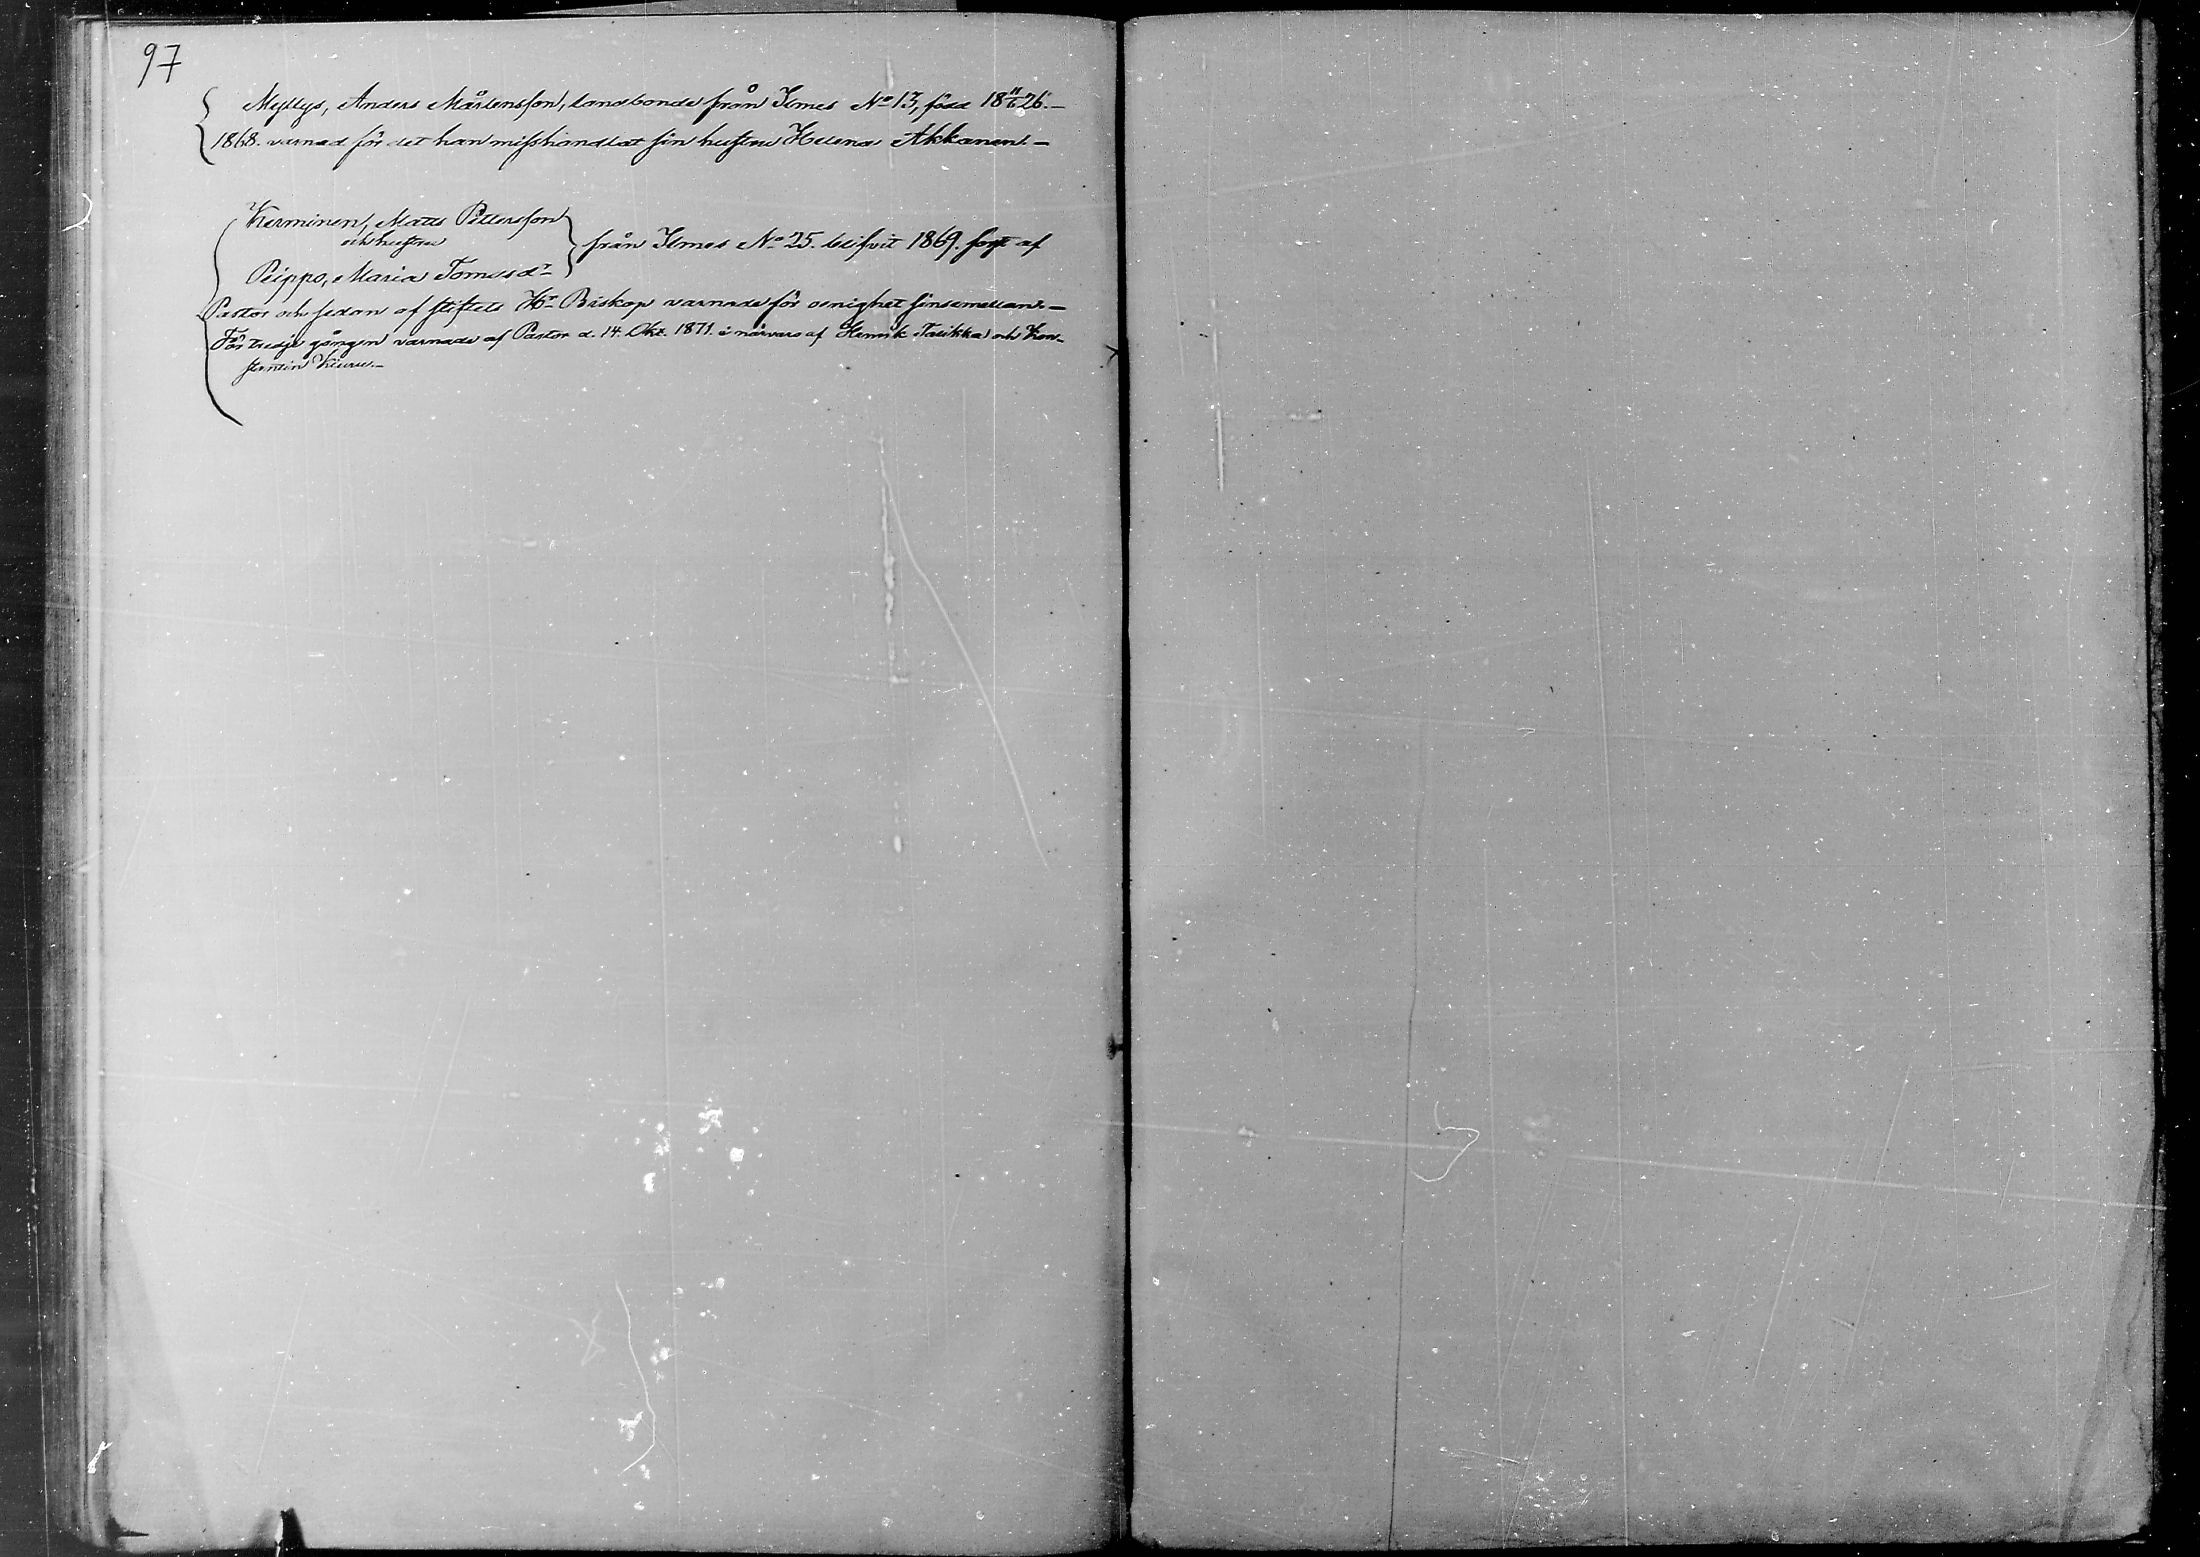 97
Myllys, Anders Mårtensson, landbonde från Ilmes No 13, född 18 11/6 26. –
1868. varnad för det han misshandlat sin hustru Helena Akkanen. –
Kerminen, Matts Pettersson
och hustru
Peippo, Maria Tomasdr
från Ilmes No 25. blifvit 1869. först af
Pastor och sedan af stiftets Hr Biskop varnade för oenighet sinsemellan. –
För tredje gången varnade af Pastor d. 14. Okt. 1871. i närvaro af Henrik Tasikka och Kon-
stantin Kiuru. –